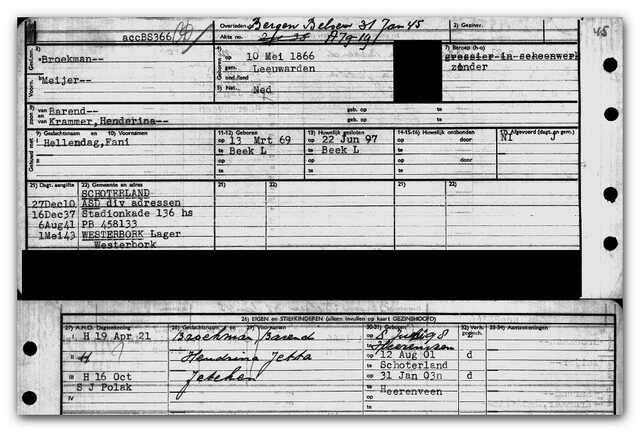 accBS366
Overleden Bergen Belsen 31 Jan 45
Akte no. A79-19
2) Gezinsr.
45
3) Broekman--
4) Geboren op 10 Mei 1866
gem. Leeuwarden
ond./land
5) Nat. Ned
7) Beroep (h-o)
grossier in schoenwerk
zonder
Meijer--
8) Barend--
geb. op te
en Krammer, Henderina--
geb. op te
9) Geslachtsnaam en 10) Voornamen
Hellendag,Fani
11-12) Geboren
op 13 Mrt 69
te Beek L
13) Huwelijk gesloten
op 22 Jun 97
te Beek L
14-15-16) Huwelijk ontbonden
op door
te
17) Afgevoerd (dagt. en gem.)
NI J
21) Dagt. aangifte 22) Gemeente en adres
SCHOTERLAND
27Dec10 ASD div adressen
16Dec37 Stadionkade 136 hs
6Aug41 PB 458133
1Mei43 WESTERBORK Lager
Westerbork
26) EIGEN en STIEFKINDEREN (alleen invullen op kaart GEZINSHOOFD)
27) A.H.O. Dagtekening 28) Geslachtsnaam en 29) Voornamen 30-31) Geboren 32) Verh. 33-34) Aanteekeningen
I H 19 Apr 21 Broekman, Barend
Heerenveen
II H Hendrina Jetta op 12 Aug 01 d
te Schoterland
III H 16 Oct Jetchen op 31 Jan 03 d
S J Polak te Heerenveen
IV op
te